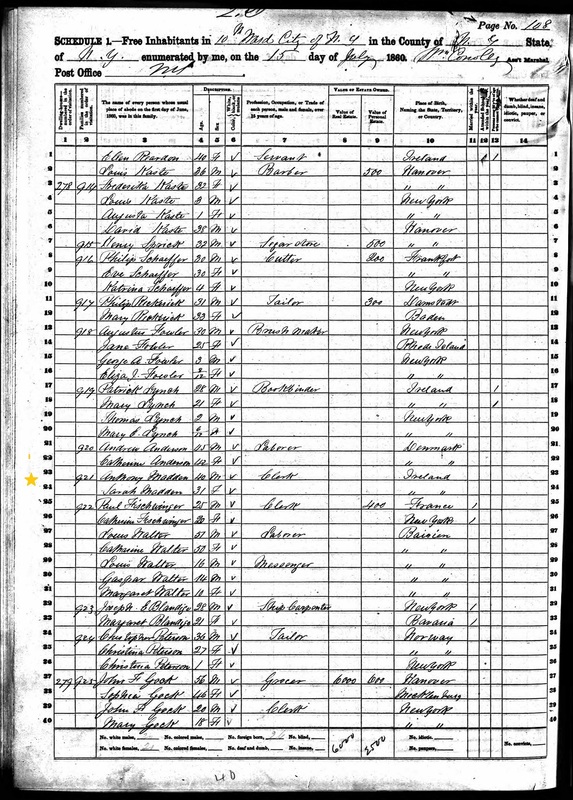 Page No. 108
SCHEDULE 1.—Free Inhabitants in 10th Ward City of N. Y in the County of N. Y State
of N. Y. enumerated by me, on the 15 day of July 1860. Ass't Marshal
Post Office
DESCRIPTION.
VALUE OF ESTATE OWNED.
The name of every person whose usual place of abode on the first day of June, 1860, was in this family.
Age. Sex.
Profession, Occupation, or Trade of each person, male and female, over 15 years of age.
Value of Real Estate. Value of Personal Estate.
Place of Birth, Naming the State, Territory, or Country.
Married within the year.
Whether deaf and dumb, blind, insane, idiotic, pauper, or convict.
1 2 3 4 5 6 7 8 9 10 11 12 13 14
1 Ellen Reardon 40 F Servant Ireland 1
2 Louis Kaste 26 M Barber 500 Hanover
3 278 914 Frederika Kaste 32 F " "
4 Louis Kaste 3 M New York
5 Augusta Kaste 1 F " "
6 David Kaste 38 M Hanover
7 915 Henry Sprick 32 M Segar Store 500 " "
8 916 Philip Schaeffer 30 M Cutter 200 Frankfort
9 Eve Schaeffer 30 F " "
10 Katrina Schaeffer 4 F New York
11 917 Philip 31 M Tailor 300 Darmstadt
12 Mary 33 F Baden
13 918 Augustus Fowler 30 M Brush Maker New York
14 Jane Fowler 25 F Rhode Island
15 George A. Fowler 3 M New York
16 Eliza J. Fowler F " "
17 919 Patrick Lynch 28 M Bookbinder Ireland 1
18 Mary Lynch 21 F " " 1
19 Thomas Lynch 2 M New York
20 Mary E Lynch F " "
21 920 Andrew Anderson 45 M Laborer Denmark
22 Catharine Anderson 42 F " "
23 921 Anthony Madden 40 M Clerk Ireland
24 Sarah Madden 31 F " "
25 922 Paul Fischwinger 25 M Clerk 400 France 1
26 Catharine Fischwinger 20 F New York 1
27 Louis Walter 51 M Laborer
28 Catharine Walter 50 F " "
29 Louis Walter 16 M Messenger " "
30 Gaspar Walter 14 M " "
31 Margaret Walter 10 F " "
32 923 Joseph E Blandija 28 M Ship Carpenter New York 1
33 Margaret Blandija 21 F Bavaria 1
34 924 Christopher Peterson 36 M Tailor Norway
35 Christina Peterson 27 F " "
36 Christina Peterson 1 F New York
37 279 925 John F Gock 56 M Grocer 6000 600 Hanover
38 Sophia Gock 46 F Mecklenburg
39 John F Gock 20 M Clerk New York
40 Mary Gock 18 F " "
No. white males, No. colored males, No. foreign born, No. blind, 6000 2500 No. idiotic, No. convicts,
No. white females, No. colored females, No. deaf and dumb, No. insane, No. paupers,
40